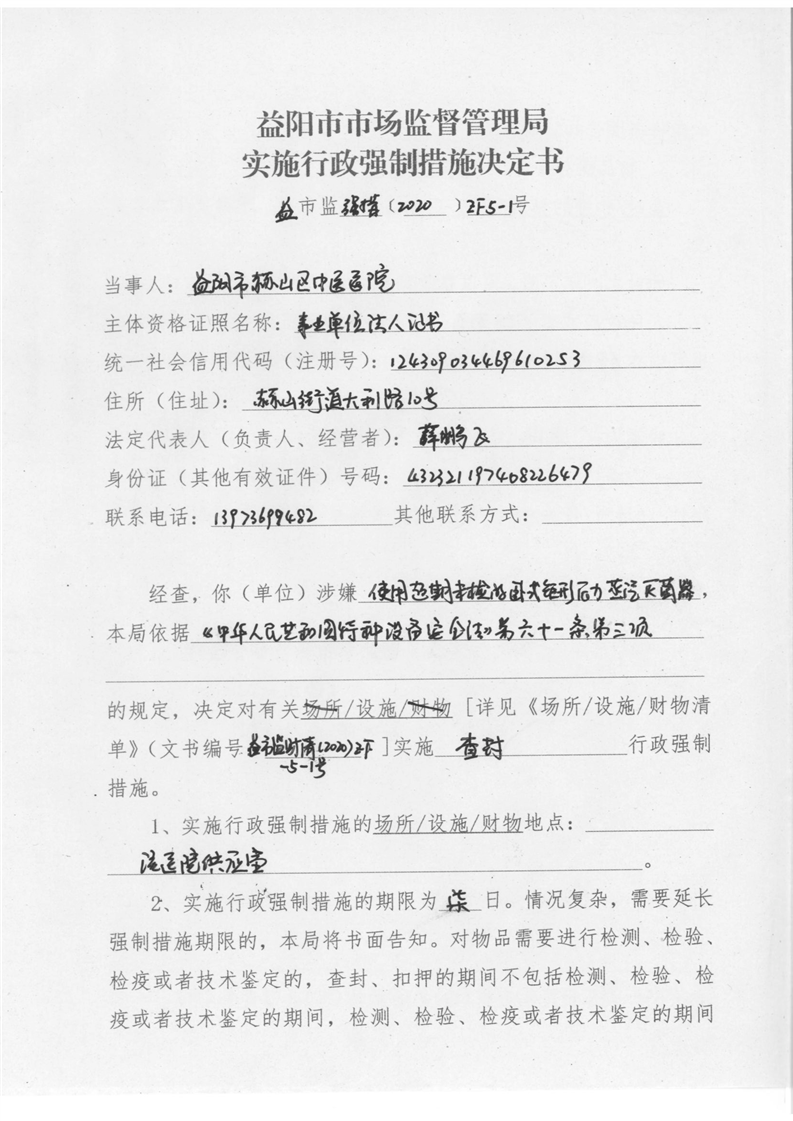 益阳市市场监督管理局
实施行政强制措施决定书
益市监强措（2020）ZF5-1号
当事人：益阳市赫山区中医医院
主体资格证照名称：事业单位法人证书
统一社会信用代码（注册号）：124309034469610253
住所（住址）：赫山街道大利路10号
法定代表人（负责人、经营者）：薛鹏飞
身份证（其他有效证件）号码：432321197408226479
联系电话：13973699482 其他联系方式：
经查，你（单位）涉嫌 使用超期未检的卧式矩形压力蒸汽灭菌器，
本局依据《中华人民共和国特种设备安全法》第六十一条第三项
的规定，决定对有关场所/设施/财物［详见《场所/设施/财物清
单》（文书编号益市监财清(2020)ZF］实施 查封 行政强制
-5-1号
措施。
1、实施行政强制措施的场所/设施/财物地点：
该医院供应室。
2、实施行政强制措施的期限为 柒 日。情况复杂，需要延长
强制措施期限的，本局将书面告知。对物品需要进行检测、检验、
检疫或者技术鉴定的，查封、扣押的期间不包括检测、检验、检
疫或者技术鉴定的期间，检测、检验、检疫或者技术鉴定的期间